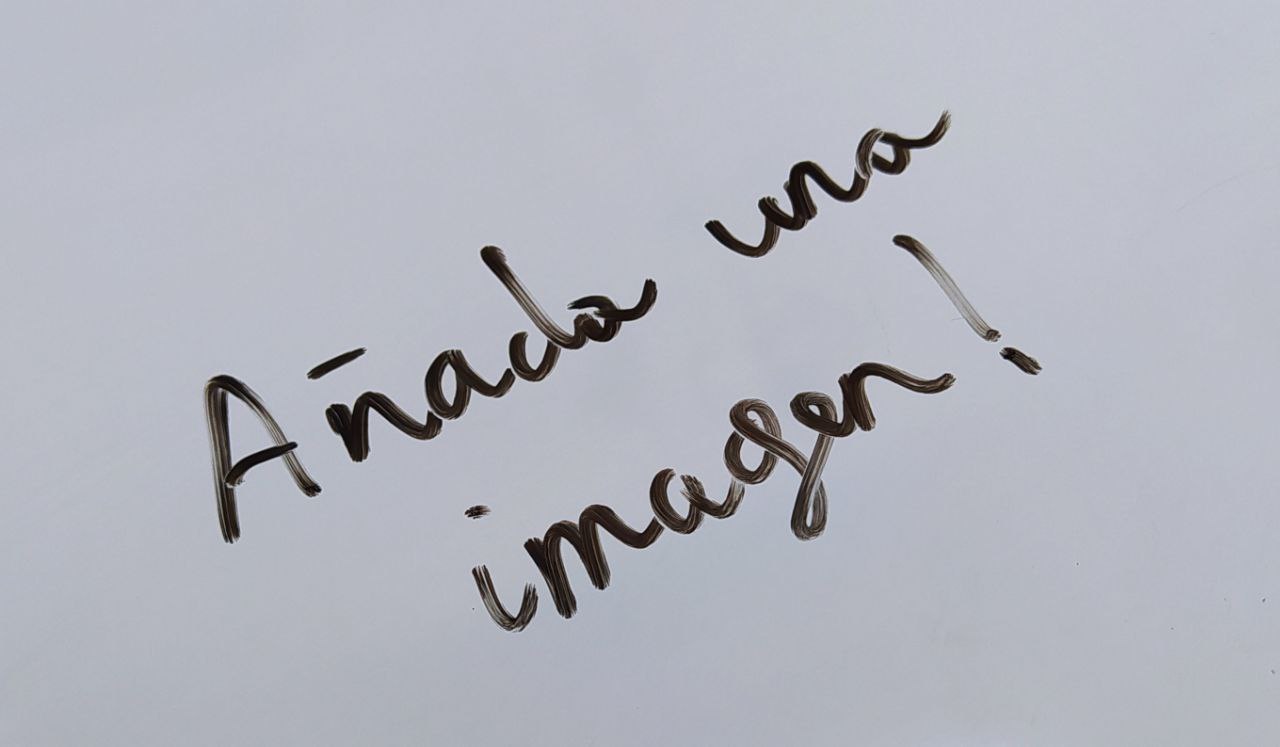 Añada una
imagen!